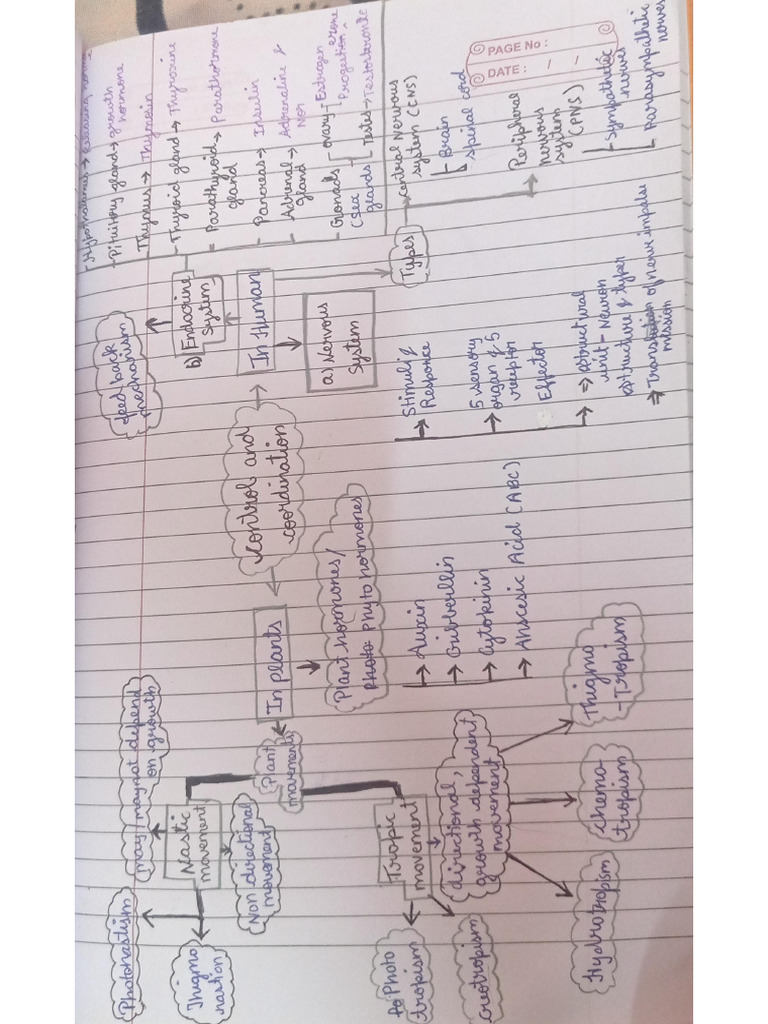 Control and
coordination
In plants
Plant
movements
Nastic
movement
may/may not depend
on growth
Non directional
movement
Photonastism
Thigmo
nastion
Tropic
movement
directional,
growth dependent
movement
Photo
tropism
Geotropism
Hydrotropism
Chemo-
tropism
Thigmo
-Tropism
Plant hormones/
Phyto hormones
→ Auxin
→ Gibberllin
→ Cytokinin
→ Abscesic Acid (ABC)
In Human
a) Nervous
System
→ Stimuli &
Response
→ 5 sensory
organ & 5
receptor
Effector
⇒ structural
unit - Neuron
structure & types
⇒ Transmission of nerve impulse
Types
→ Central Nervous
system (CNS)
Brain
spinal cord
Peripheral
nervous
system
(PNS)
Sympathetic
nerves
Parasympathetic
nerves
b) Endocrine
System
feed back
mechanism
- Hypothalamus →
- Pituitory gland → growth
hormone
Thymus → Thymosin
- Thyroid gland → Thyroxine
- Parathyroid → Parathormone
gland
- Pancreas → Insulin
- Adrenal → Adrenaline &
gland Nor
- Gronads ovary - Estrogen
(Sex Progestrone
glands Testes → Testosterone
PAGE No :
DATE : / /